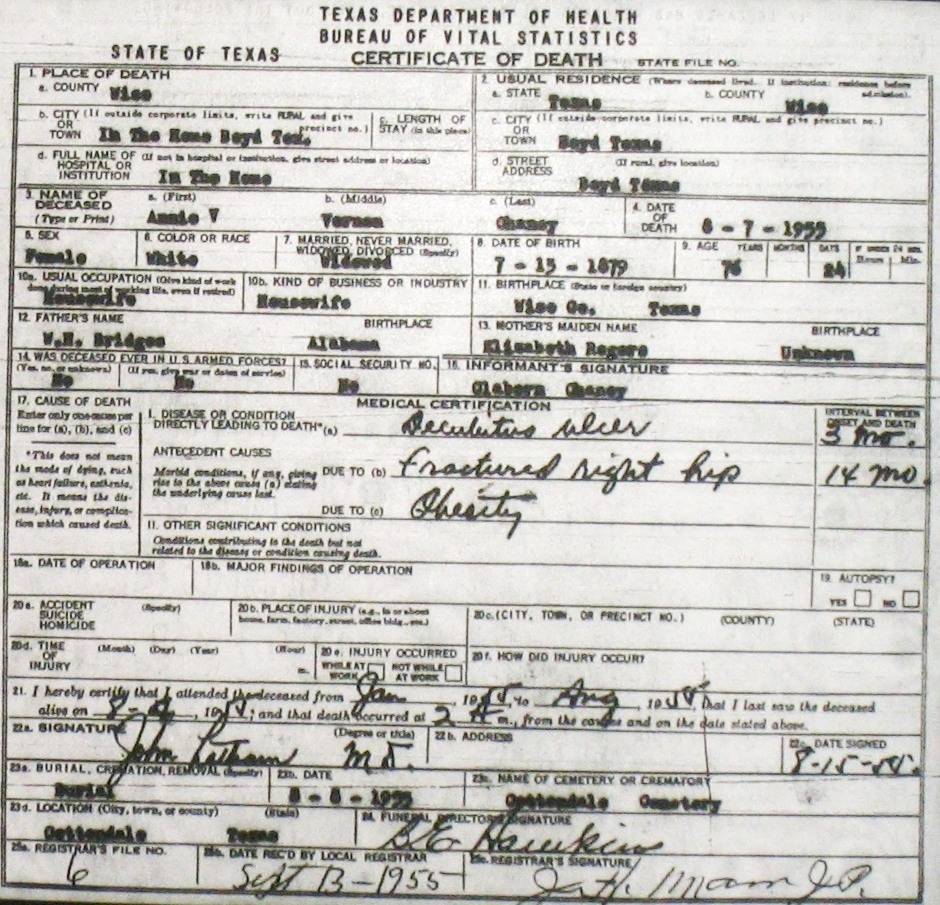 TEXAS DEPARTMENT OF HEALTH
BUREAU OF VITAL STATISTICS
STATE OF TEXAS CERTIFICATE OF DEATH STATE FILE NO.
1. PLACE OF DEATH
a. COUNTY Wise
2. USUAL RESIDENCE (Where deceased lived. If institution: residence before admission).
a. STATE Texas b. COUNTY Wise
b. CITY (If outside corporate limits, write RURAL and give precinct no.)
OR
TOWN In The Home Boyd Tex.
c. LENGTH OF
STAY (in this place)
c. CITY (If outside corporate limits, write RURAL and give precinct no.)
OR
TOWN Boyd Texas
d. FULL NAME OF (If not in hospital or institution, give street address or location)
HOSPITAL OR
INSTITUTION In The Home
d. STREET (If rural, give location)
ADDRESS Boyd Texas
3. NAME OF a. (First) b. (Middle) c. (Last)
DECEASED
(Type or Print) Annie V Vernon Chaney
4. DATE
OF
DEATH 8 - 7 - 1955
5. SEX
Female
6. COLOR OR RACE
White
7. MARRIED, NEVER MARRIED,
WIDOWED, DIVORCED (Specify)
Widowed
8. DATE OF BIRTH
7 - 15 - 1879
9. AGE YEARS MONTHS DAYS IF UNDER 24 HRS.
Hours Min.
76 24
10a. USUAL OCCUPATION (Give kind of work
done during most of working life, even if retired)
Housewife
10b. KIND OF BUSINESS OR INDUSTRY
Housewife
11. BIRTHPLACE (State or foreign country)
Wise Co. Texas
12. FATHER'S NAME BIRTHPLACE
W.H. Bridges Alabama
13. MOTHER'S MAIDEN NAME BIRTHPLACE
Elizabeth Rogers Unknown
14. WAS DECEASED EVER IN U.S. ARMED FORCES?
(Yes, no, or unknown) (If yes, give war or dates of service)
No No
15. SOCIAL SECURITY NO.
No
16. INFORMANT'S SIGNATURE
Chaney
17. CAUSE OF DEATH
Enter only one cause per
line for (a), (b), and (c)
*This does not mean
the mode of dying, such
as heart failure, asthenia,
etc. It means the dis-
ease, injury, or complica-
tion which caused death.
MEDICAL CERTIFICATION
I. DISEASE OR CONDITION
DIRECTLY LEADING TO DEATH*(a) Decubitus ulcer
INTERVAL BETWEEN
ONSET AND DEATH
3 mo.
ANTECEDENT CAUSES
Morbid conditions, if any, giving
rise to the above cause (a) stating
the underlying cause last.
DUE TO (b) Fractured right hip 14 mo.
DUE TO (c) Obesity
II. OTHER SIGNIFICANT CONDITIONS
Conditions contributing to the death but not
related to the disease or condition causing death.
18a. DATE OF OPERATION
18b. MAJOR FINDINGS OF OPERATION
19. AUTOPSY?
YES NO
20a. ACCIDENT (Specify)
SUICIDE
HOMICIDE
20b. PLACE OF INJURY (e.g., in or about
home, farm, factory, street, office bldg., etc.)
20c. (CITY, TOWN, OR PRECINCT NO.) (COUNTY) (STATE)
20d. TIME (Month) (Day) (Year) (Hour)
OF
INJURY m.
20e. INJURY OCCURRED
WHILE AT
WORK
NOT WHILE
AT WORK
20f. HOW DID INJURY OCCUR?
21. I hereby certify that I attended the deceased from Jan , 19 to Aug , 19 , that I last saw the deceased
alive on , 19 ; and that death occurred at 2 m., from the causes and on the date stated above.
22a. SIGNATURE (Degree or title)
John M.D.
22b. ADDRESS
22c. DATE SIGNED
23a. BURIAL, CREMATION, REMOVAL (Specify)
Burial
23b. DATE
8 - 8 - 1955
23c. NAME OF CEMETERY OR CREMATORY
Cottondale Cemetery
23d. LOCATION (City, town, or county) (State)
Cottondale Texas
24. FUNERAL DIRECTOR'S SIGNATURE
Hawkins
25a. REGISTRAR'S FILE NO.
6
25b. DATE REC'D BY LOCAL REGISTRAR
Sept 13-1955
25c. REGISTRAR'S SIGNATURE
J.P.